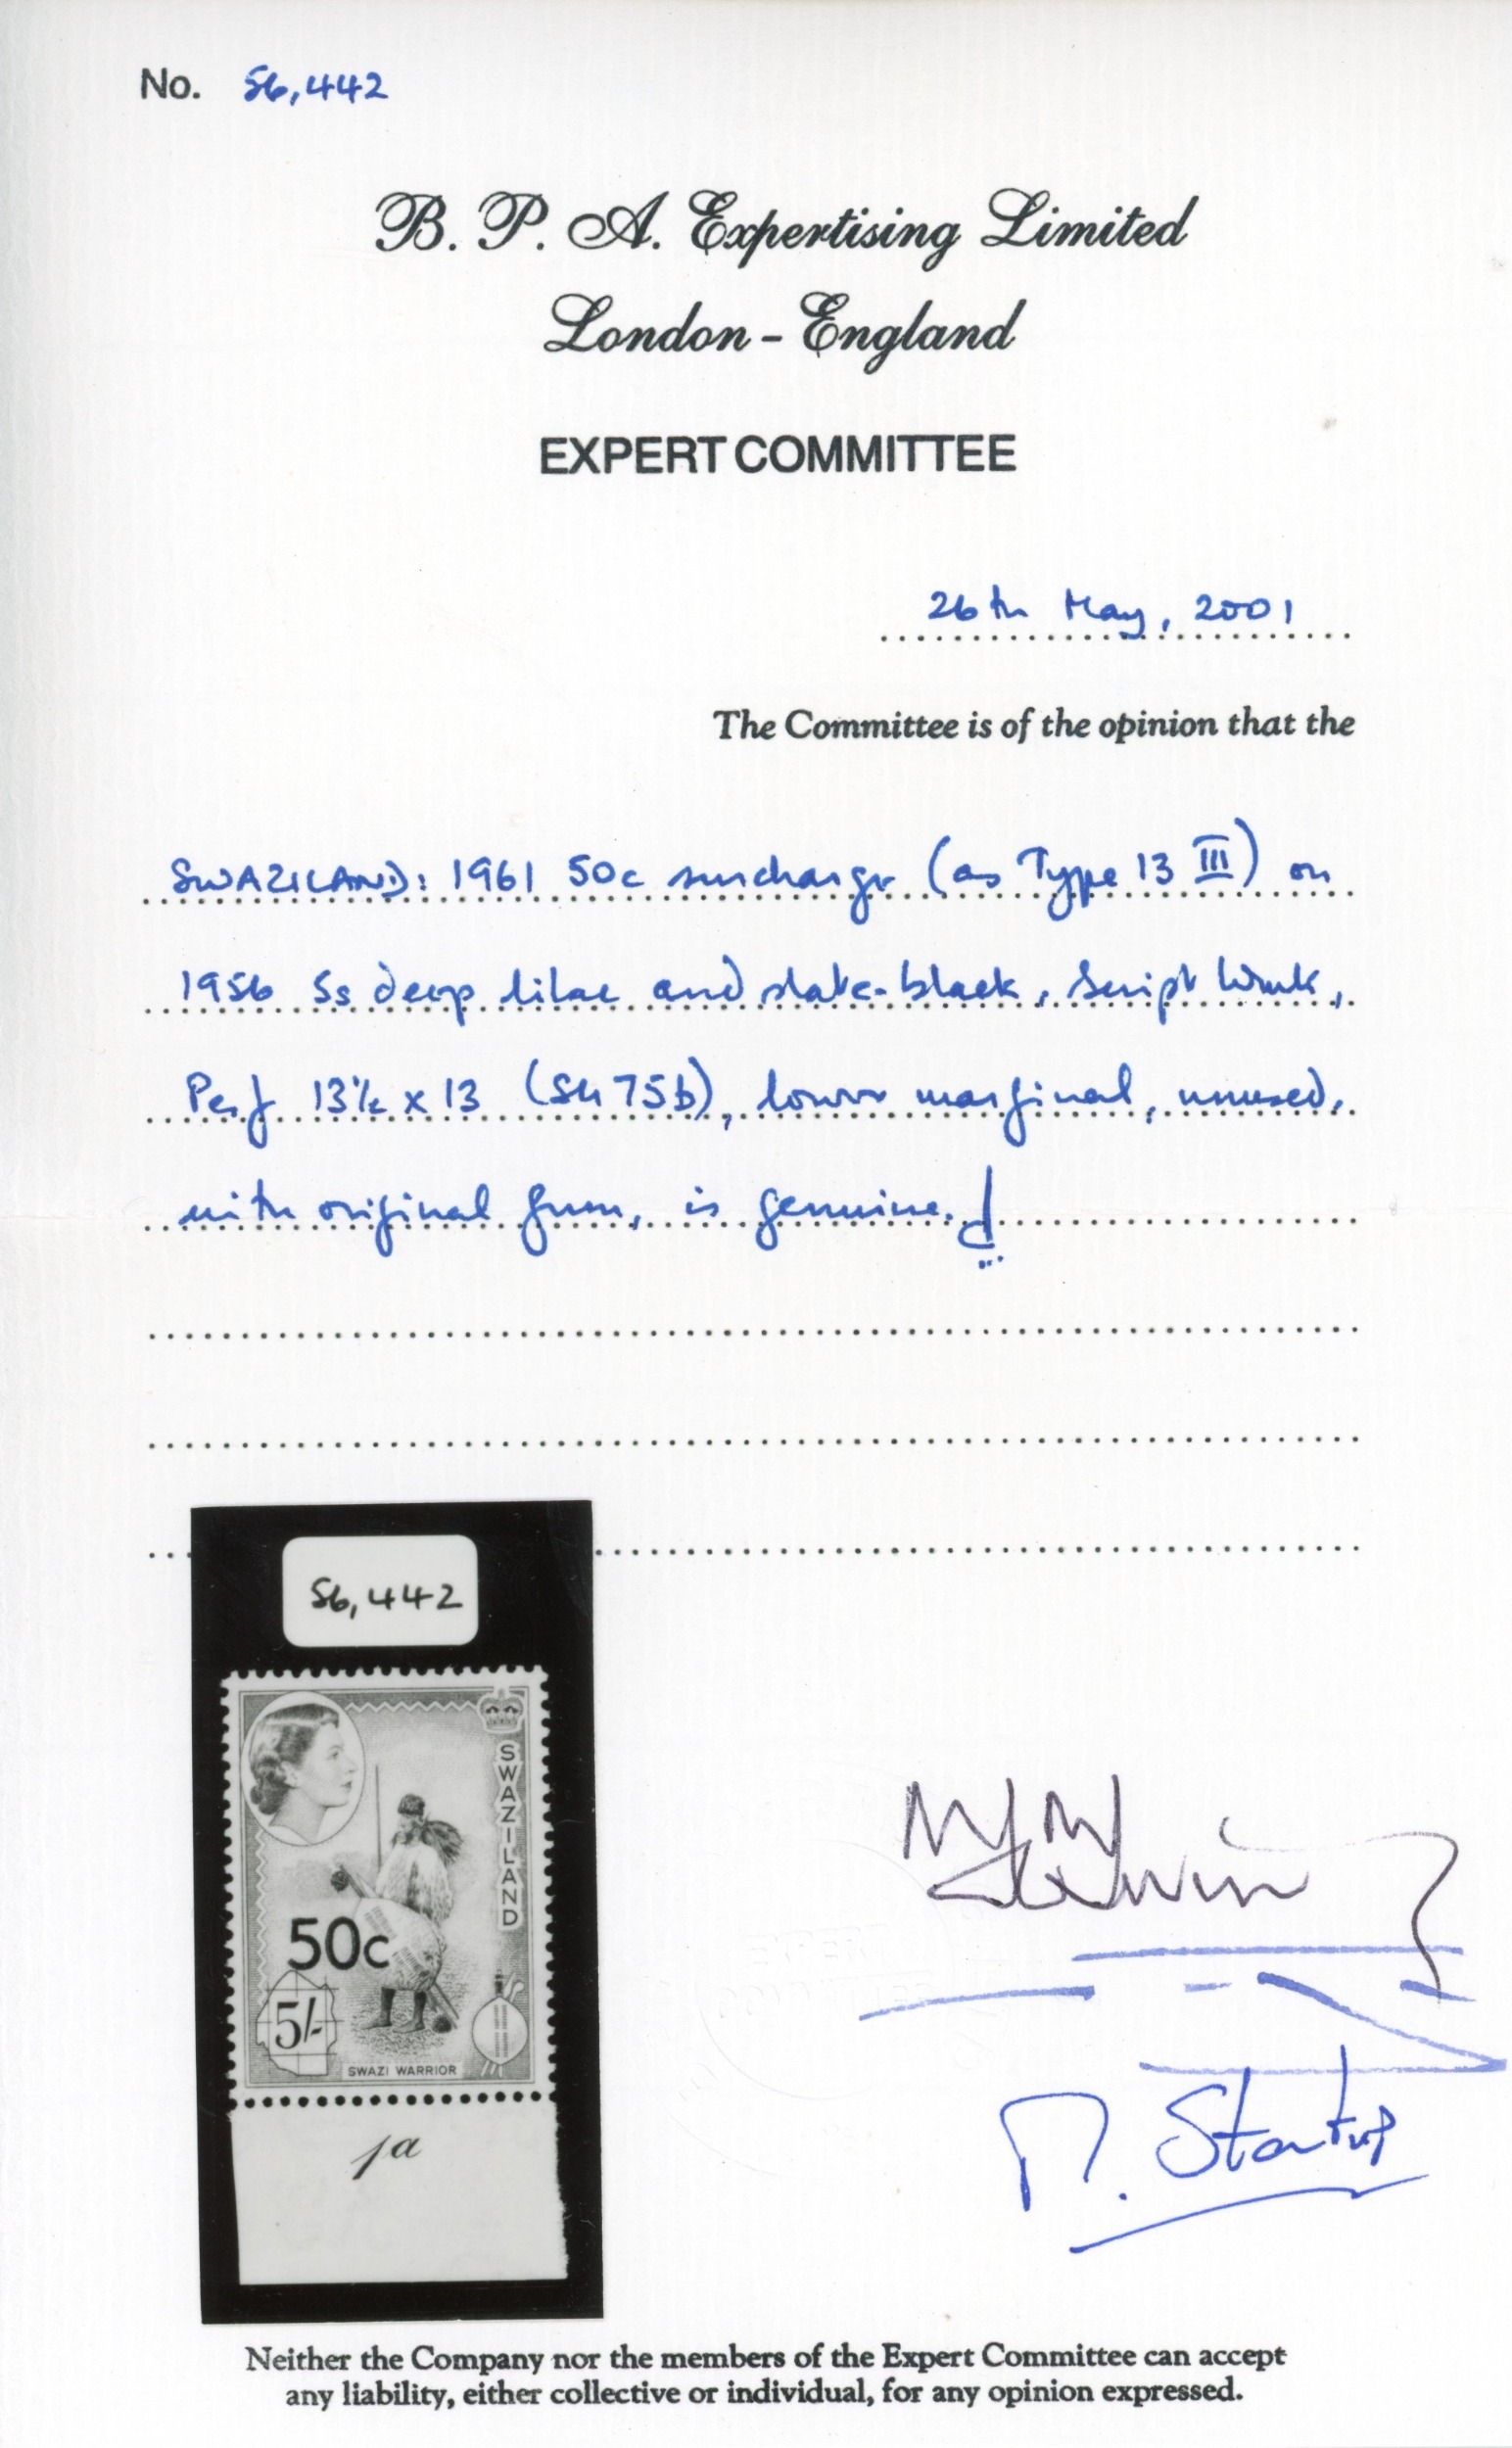 No. 56,442
B. P. A. Expertising Limited
London - England
EXPERT COMMITTEE
26th May, 2001
The Committee is of the opinion that the
SWAZILAND: 1961 50c surcharge (as Type 13 III) on
1956 5s deep lilac and slate-black, Script Wmk,
Perf 13½ x 13 (SG 75b), lower marginal, unused,
with original gum, is genuine.
56,442
SWAZILAND
50c
5/-
SWAZI WARRIOR
1a
P. Startup
Neither the Company nor the members of the Expert Committee can accept
any liability, either collective or individual, for any opinion expressed.